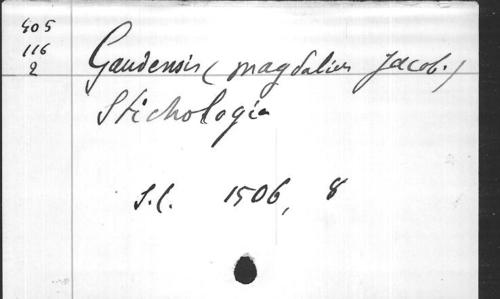 405
116
2
Gaudensis (Magdalius Jacob.)
Stichologia
S. l. 1506, 8